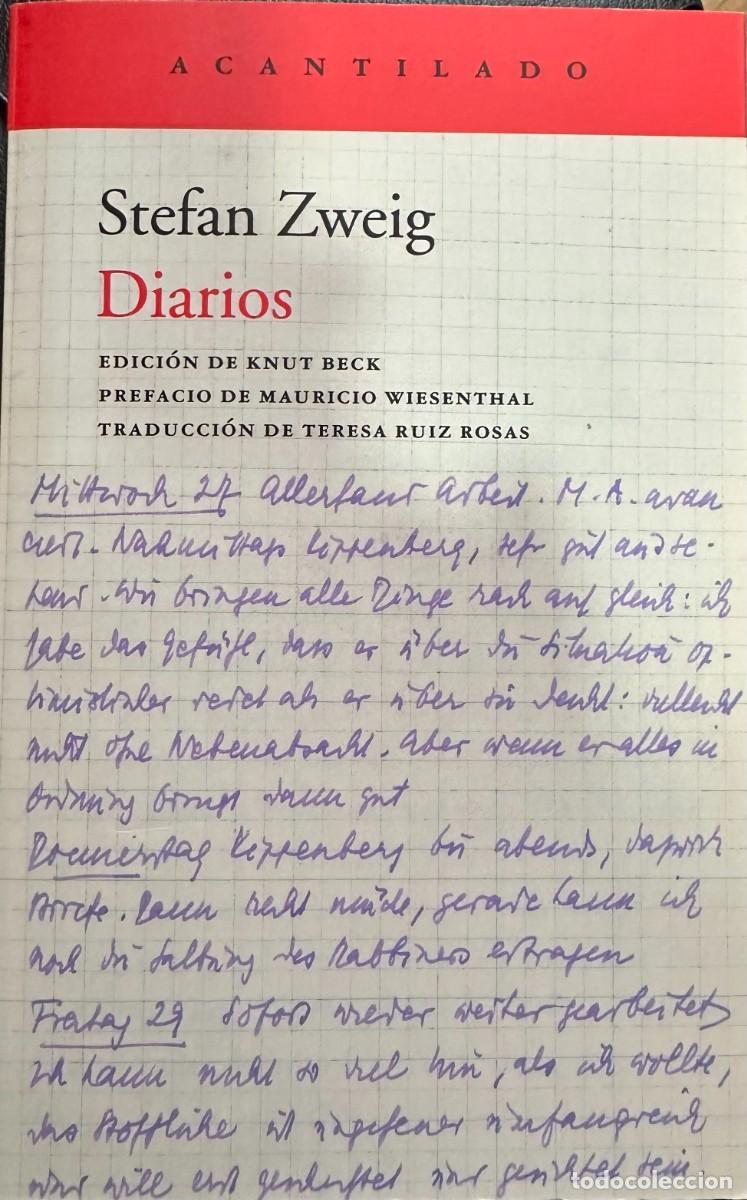 ACANTILADO
Stefan Zweig
Diarios
EDICIÓN DE KNUT BECK
PREFACIO DE MAURICIO WIESENTHAL
TRADUCCIÓN DE TERESA RUIZ ROSAS
Mittwoch 27 Allerhand Arbeit. M. A. avan
ciert. Nachmittags Kippenberg, sehr gut
Wir bringen alle Dinge rasch auf gleich: ich
habe das Gefühl, dass er über die Situation op-
timistischer redet als er über sie denkt: vielleicht
nicht ohne Nebenabsicht. Aber wenn er alles in
Ordnung bringt dann gut
Donnerstag Kippenberg bis abends, dazwischen
Briefe. Dann recht müde, gerade kann ich
noch die des Rabbiners ertragen
Freitag 29 Sofort wieder weiter gearbeitet
Ich kann nicht so viel tun, als ich wollte,
das Stoffliche ist ungeheuer umfangreich
und will erst gesichtet sein.
todocoleccion